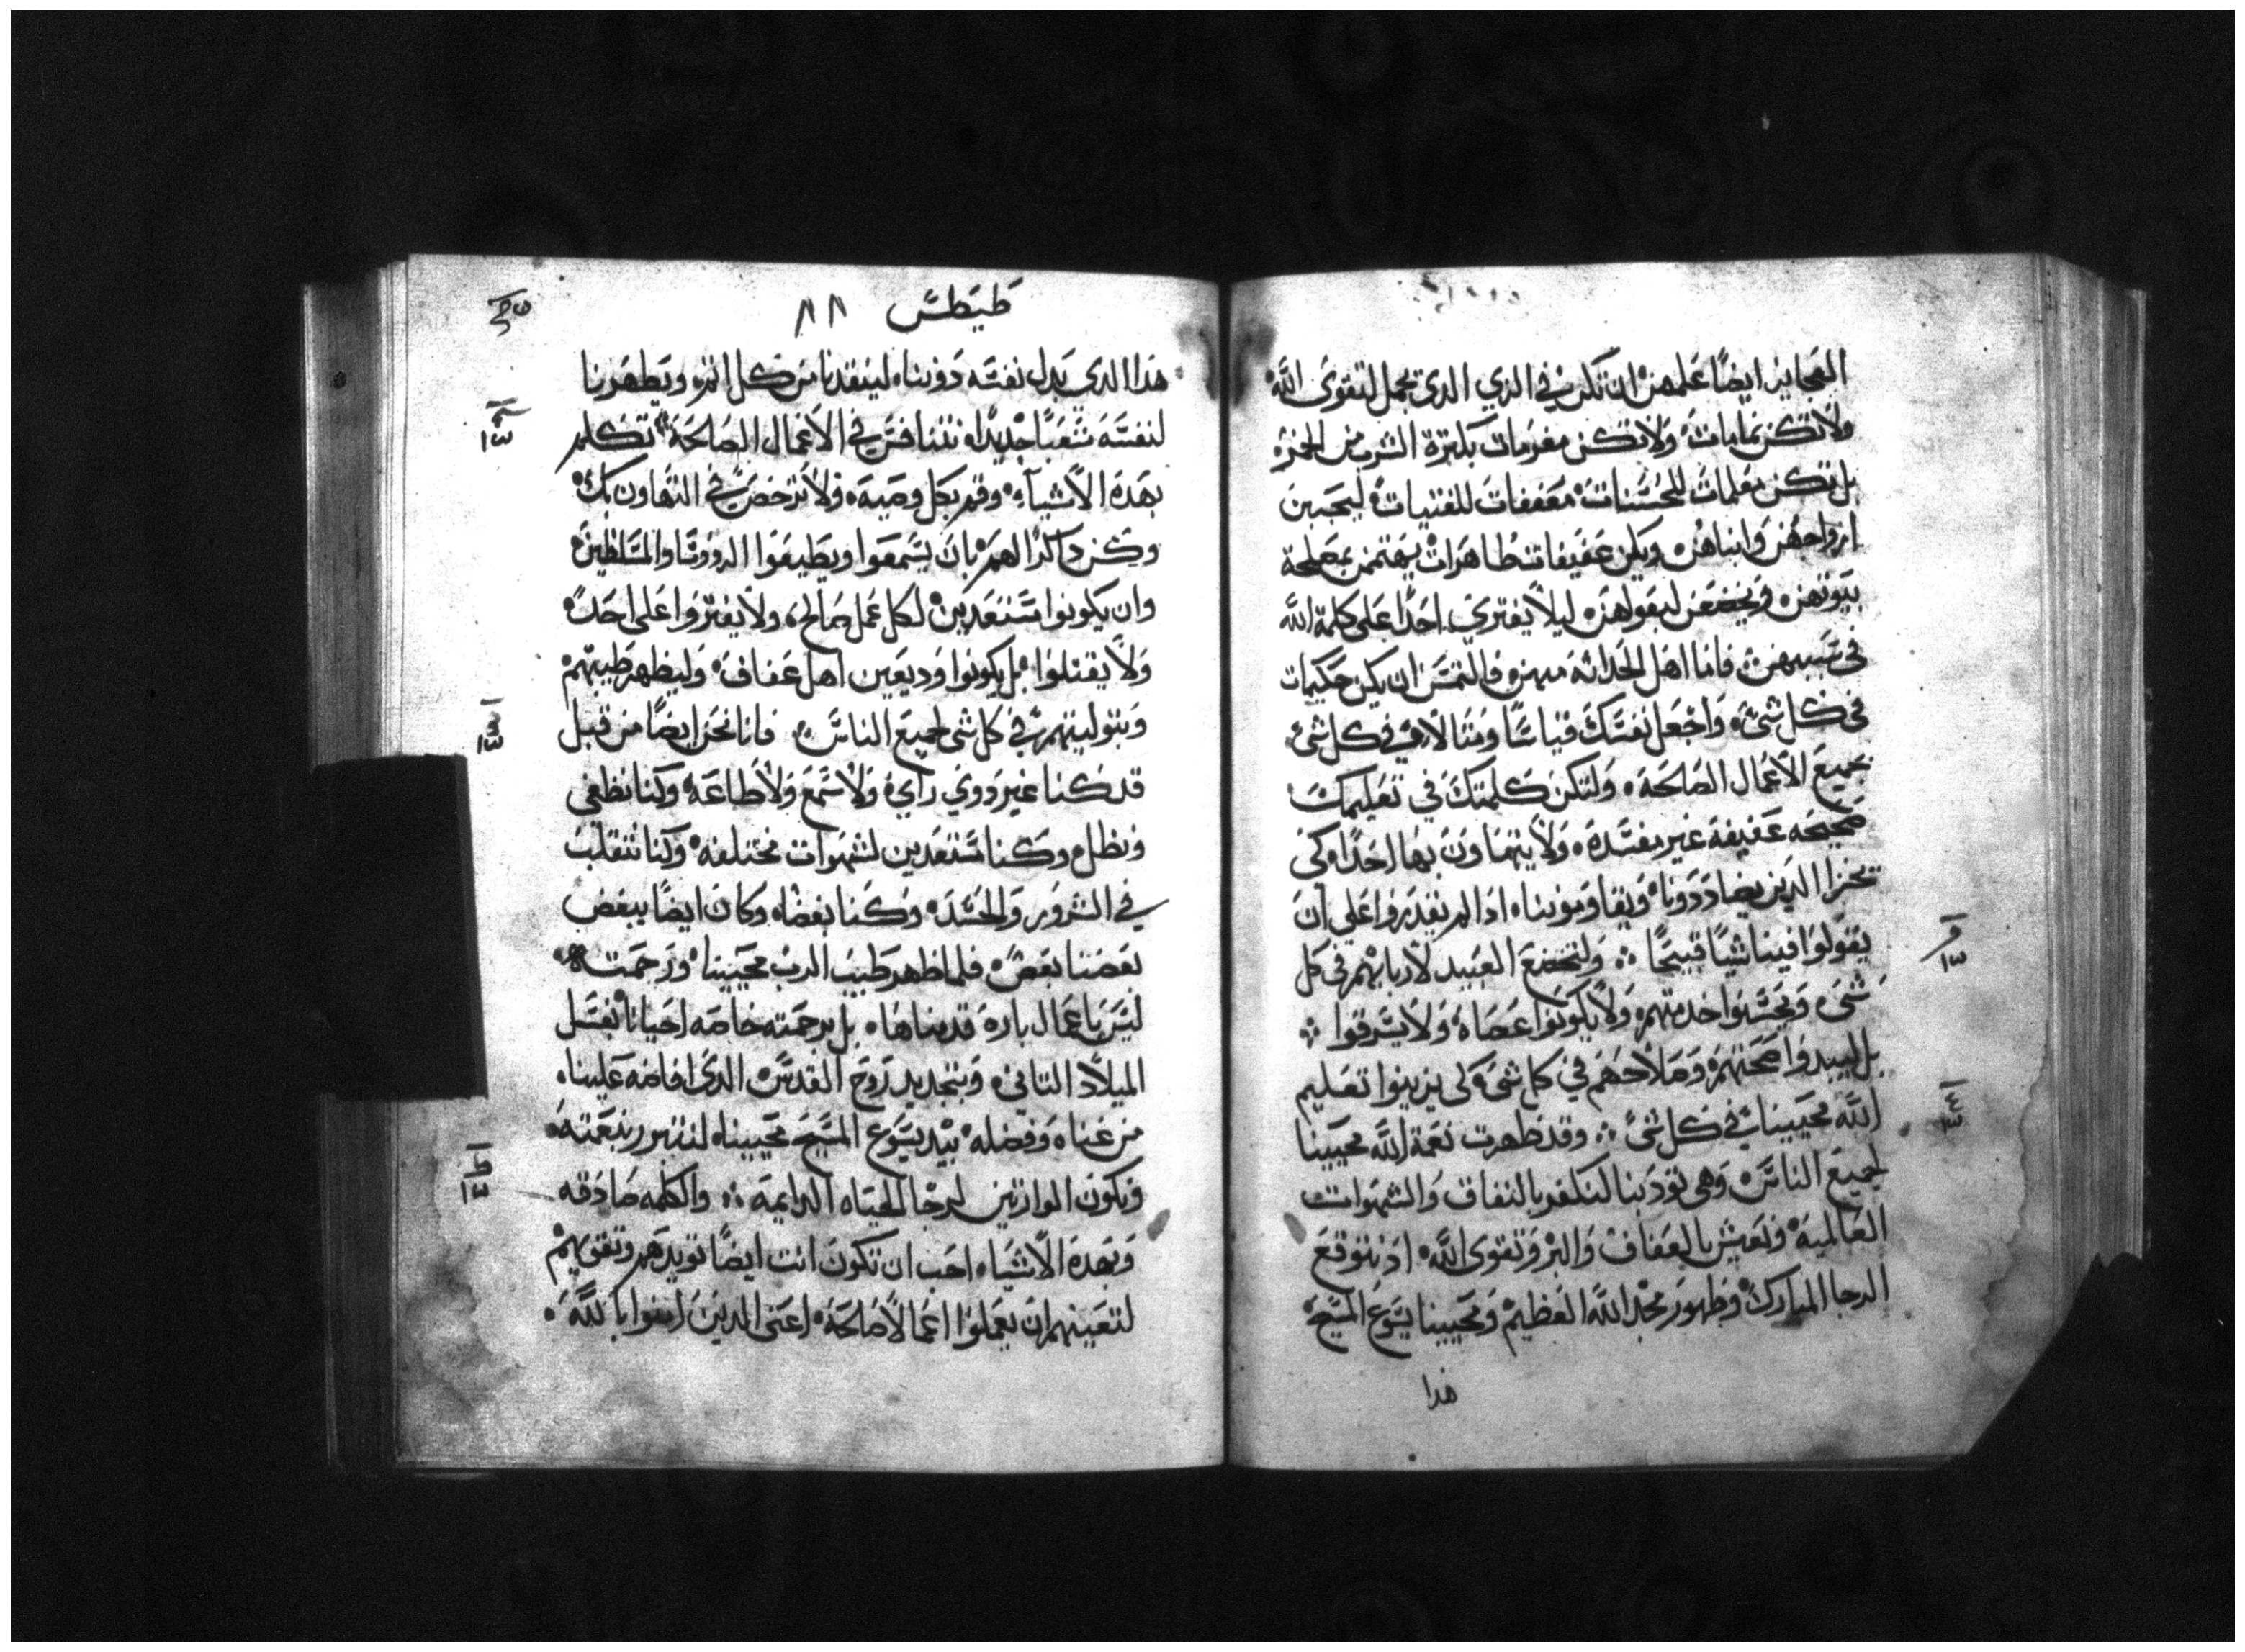 العجايز ايضًا علمهن ان تكن في الزي الذي يجمل لتقوى الله
ولا تكن نمامات ولا تكن مغرمات بكثرة الشرب من الخمر
بل تكن معلمات للحسنات معففات للفتيات ليحببن
ازواجهن وابناهن ويكن عفيفات طاهرات يهتممن بمصلحة
بيوتهن ويخضعن لبعولهن ليلا يفتري احدًا على كلمة الله
في سببهن فاما اهل الحداثه منهن فالتمس ان يكن حكيمات
في كل شى واجعل نفسك قياسًا ومثالًا في كل شى
جميع الاعمال الصالحة ولتكن كلمتك في تعليمك
صحيحه عفيفة غير مفسدة ولا يتهاون بها احدًا كى
يخزا الدين يضاددونا ويقاومونا ادا لم يقدروا على ان
يقولوا فينا شيًا قبيحًا ولتخضع العبيد لاربابهم في كل
شى ويحسنوا خدمتهم ولا يكونوا عصاه ولا يسرقوا
بل ليبدوا صحتهم وصلاحهم في كل شى كى يزينوا تعليم
الله محيينا في كل شى وقد ظهرت نعمة الله محيينا
لجميع الناس وهى تودبنا لنكفر بالنفاق والشهوات
العالمية ونعيش بالعفاف والبر وتقوى الله اد نتوقع
الرجا المبارك وظهور مجد الله العظيم ومحيينا يسوع المسيح
هدا
طيطس ٨٨
هدا الدى بدل نفسه دوننا لينقدنا من كل اثم ويطهرنا
لنفسه شعبًا جديدًا نتنافس في الاعمال الصالحة تكلم
بهده الاشياء وقم بكل وصيه ولا ترخص في التهاون بك
وكن داكرًا لهم بان يسمعوا ويطيعوا الروؤسا والسلاطين
وان يكونوا مستعدين لكل عمل صالح ولا يفتروا على احد
ولا يقتلوا بل يكونوا وديعين اهل عفاف وليظهر طيبتهم
وبتوليتهم في كل شى لجميع الناس فانا نحن ايضًا من قبل
قد كنا غير دوي راي ولا سمع ولا طاعة وكنا نطغى
ونظل وكنا مستعدين لشهوات مختلفه وكنا نتقلب
في الشرور والحسد وكنا بغضاه وكان ايضًا يبغض
بعضنا بعض فلما ظهر طيب الرب محيينا ورحمته
ليس باعمال باره قدمناها بل برحمته خاصه احيانا بغسل
الميلاد التاني وبتجديد روح القدس الدى افاضه علينا
من غناه وفضله بيد يسوع المسيح محيينا لنتبرر بنعمته
ونكون الوارتين لرجا الحياه الدايمة والكلمه صادقه
وبهدة الاشياء احب ان تكون انت ايضًا تويدهم وتقويهم
لتعينهم ان يعملوا اعمالًا صالحة اعنى الدين امنوا بالله